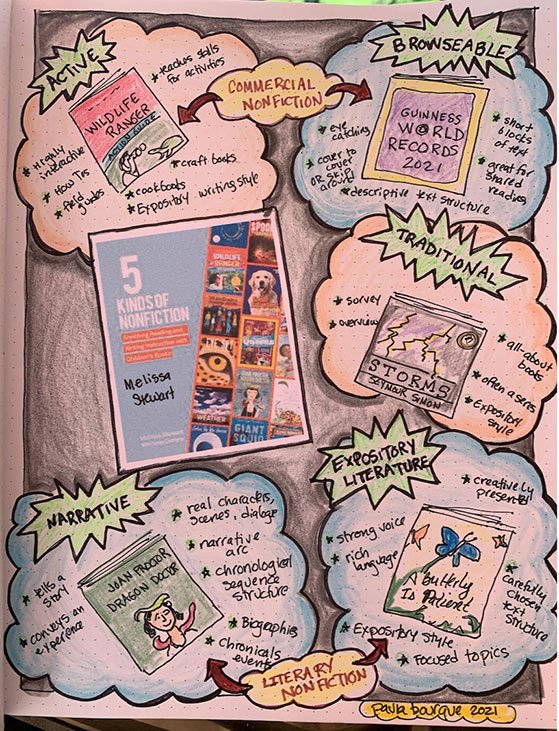 ACTIVE
* teaches skills
for activities
WILDLIFE
RANGER
ACTION GUIDE
* Highly
interactive
* How Tos
* field
guides
* craft books
* cookbooks
* Expository writing style
COMMERCIAL
NONFICTION
BROWSEABLE
GUINNESS
WORLD
RECORDS
2021
* eye
catching
* cover to
cover
OR skip
around
* short
blocks
of text
* great for
shared
reading
* descriptive text structure
5
KINDS OF
NONFICTION
Enriching Reading and
Writing Instruction with
Children's Books
Melissa
Stewart
WILDLIFE
RANGER
WEATHER
GIANT
SQUID
TRADITIONAL
* survey
* overview
STORMS
SEYMOUR SIMON
* all-about
books
* often a series
* Expository
style
NARRATIVE
* real characters,
scenes, dialoge
* narrative
arc
* chronological
sequence
structure
* tells a
story
* conveys an
experience
JOAN PROCTOR
DRAGON DOCTOR
* Biographies
* Chronicals
events
EXPOSITORY
LITERATURE
* creatively
presented
* strong voice
* rich
language
A Butterfly
Is Patient
* carefully
chosen
text
structure
* Expository style
* Focused topics
LITERARY
NONFICTION
paula bourque 2021